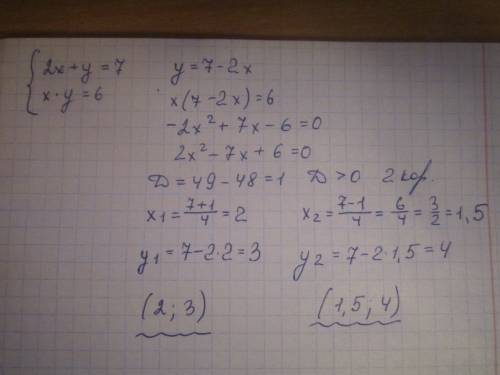 { 2x+y=7 y=7-2x
x·y=6 x(7-2x)=6
-2x²+7x-6=0
2x²-7x+6=0
D=49-48=1 D>0 2 кор.
x₁=(7+1)/4=2 x₂=(7-1)/4=6/4=3/2=1,5
y₁=7-2·2=3 y₂=7-2·1,5=4
(2;3) (1,5;4)